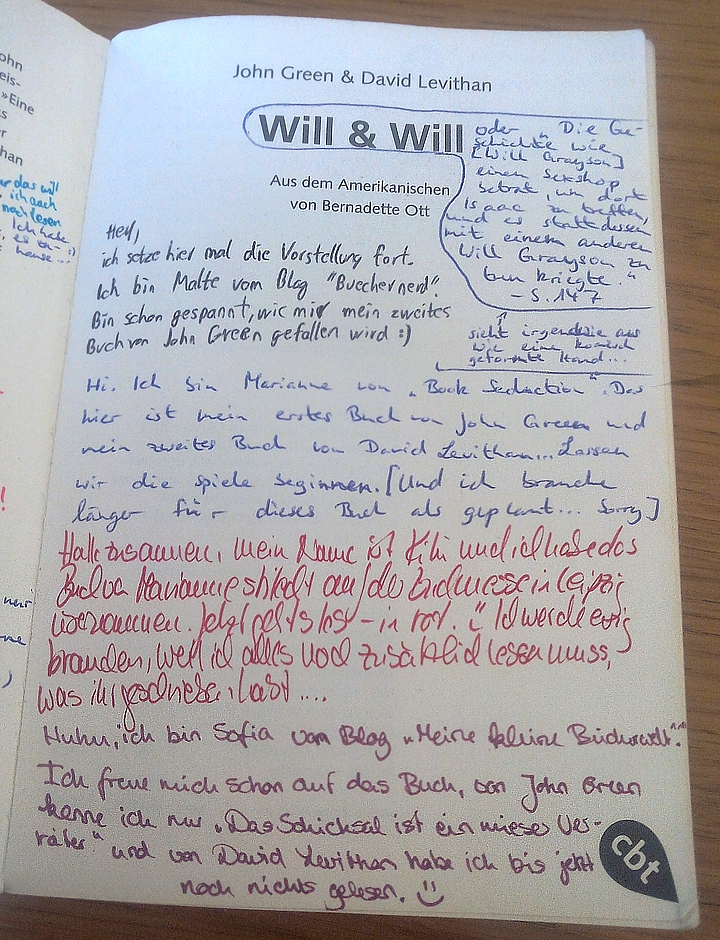 John Green & David Levithan
Will & Will
Aus dem Amerikanischen
von Bernadette Ott
oder „Die Ge-
schichte wie
[Will Grayson]
einen Sexshop
betrat, um dort
Isaac zu treffen,
und es stattdessen
mit einem anderen
Will Grayson zu
tun kriegte."
– S. 147
sieht irgendwie aus
wie eine komisch
geformte Hand...
Hey,
ich setze hier mal die Vorstellung fort.
Ich bin Malte vom Blog "Buechernerd".
Bin schon gespannt, wie mir mein zweites
Buch von John Green gefallen wird :)
Hi. Ich bin Marianne von „Book Seduction". Das
hier ist mein erstes Buch von John Green und
mein zweites Buch von David Levithan... Lassen
wir die spiele beginnen. [Und ich brauche
länger für dieses Buch als geplant... Sorry]
Hallo zusammen, mein Name ist und ich habe das
Buch von Marianne direkt auf der Buchmesse in Leipzig
übernommen. Jetzt geht's los – in rot. Ich werde ewig
brauchen, weil ich alles noch zusätzlich lesen muss,
was ihr geschrieben habt ....
Huhu, ich bin Sofia vom Blog „Meine kleine Bücherwelt".
Ich freue mich schon auf das Buch, von John Green
kenne ich nur „Das Schicksal ist ein mieser Ver-
räter" und von David Levithan habe ich bis jetzt
noch nichts gelesen. :)
cbt
ohn
eis-
»Eine
s
r
han
das will
ich auch
noch lesen
Ich habe
nur